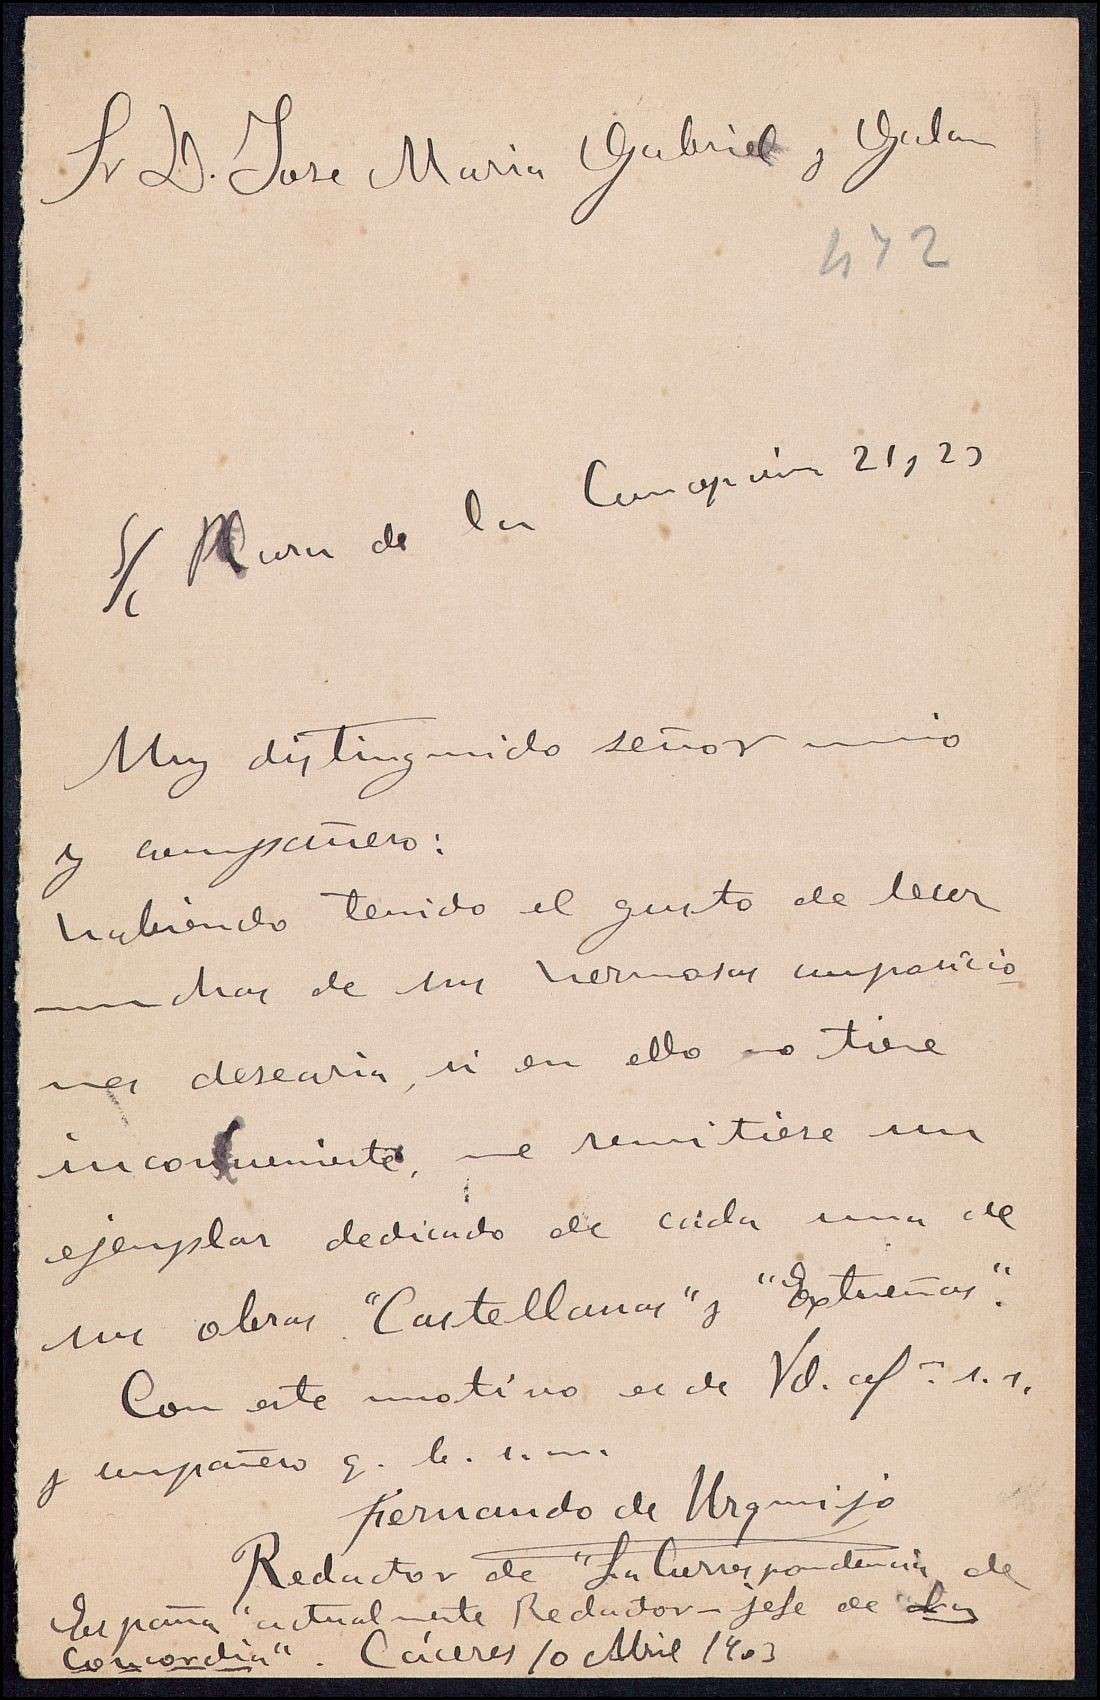 Sr D. Jose Maria Gabriel y Galan
472
S/c Plaza de la Concepcion 21, 23
Muy distinguido señor mio
y compañero:
habiendo tenido el gusto de leer
muchas de sus hermosas composicio
nes desearia, si en ello no tiene
inconveniente, me remitiese un
ejemplar dedicado de cada una de
sus obras "Castellanas" y "Extremeñas".
Con este motivo es de Vd. af.mo s. s.
y compañero q. b. s. m.
Fernando de Urquijo
Redactor de "La Correspondencia de
España" actualmente Redactor-jefe de "La
Concordia". Cáceres 10 Abril 1903